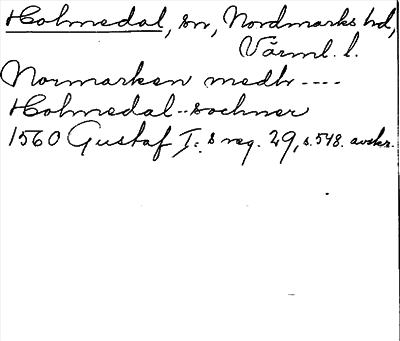 Holmedal, sn, Nordmarks hd,
Värml. l.
Normarken medh ----
Holmedal--sochner
1560 Gustaf I:s reg. 29, s. 548. avskr.